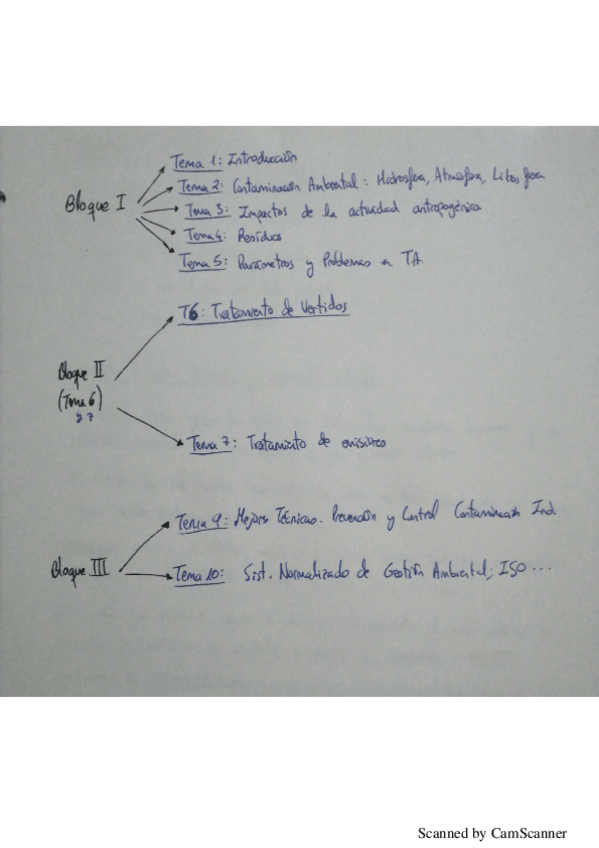 Bloque I
Tema 1: Introducción
Tema 2: Contaminación Ambiental: Hidrosfera, Atmosfera, Litosfera
Tema 3: Impactos de la actividad antropogénica
Tema 4: Residuos
Tema 5: Parámetros y Problemas en TA
Bloque II
(Tema 6)
y 7
T6: Tratamiento de Vertidos
Tema 7: Tratamiento de emisiones
Bloque III
Tema 9: Mejores Técnicas. Prevención y Control Contaminación Ind.
Tema 10: Sist. Normalizado de Gestión Ambiental; ISO ...
Scanned by CamScanner